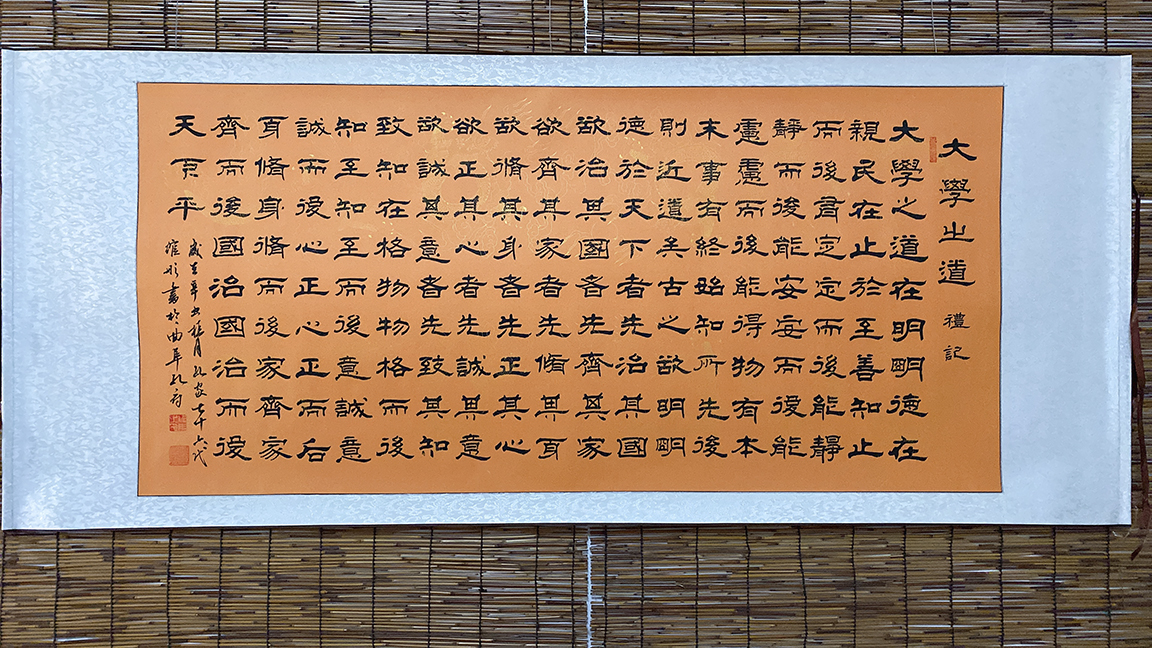 大學之道 禮記
大學之道在明明德在
親民在止於至善知止
而後有定定而後能靜
靜而後能安安而後能
慮慮而後能得物有本
末事有終始知所先後
則近道矣古之欲明明
德於天下者先治其國
欲治其國者先齊其家
欲齊其家者先脩其身
欲脩其身者先正其心
欲正其心者先誠其意
欲誠其意者先致其知
致知在格物物格而後
知至知至而後意誠意
誠而後心正心正而后
身脩身脩而後家齊家
齊而後國治國治而後
天下平
歲 辛丑 月孔家七十六代
書於曲阜孔府